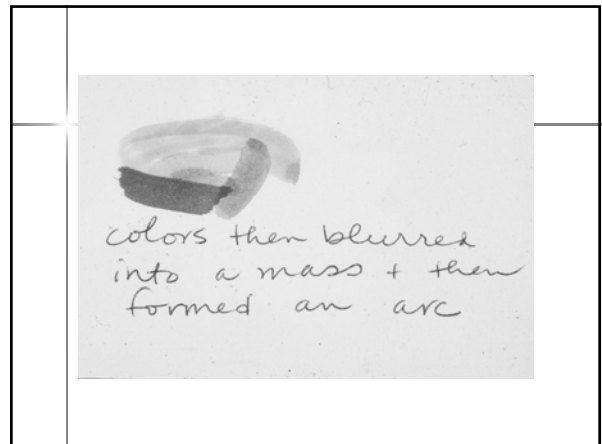 colors then blurred
into a mass + then
formed an arc